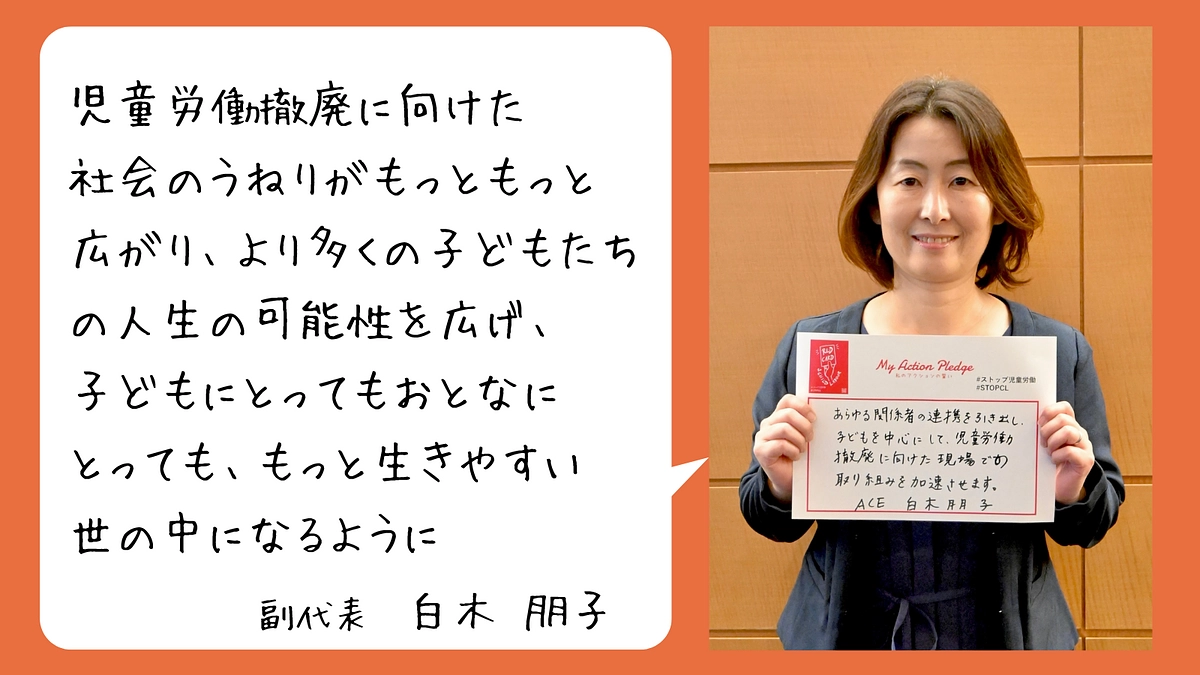 児童労働撤廃に向けた
社会のうねりがもっともっと
広がり、より多くの子どもたち
の人生の可能性を広げ、
子どもにとってもおとなに
とっても、もっと生きやすい
世の中になるように
副代表 白木 朋子
RED
CARD
My Action Pledge
私のアクションの誓い
#ストップ児童労働
#STOPCL
あらゆる関係者の連携を引き出し、
子どもを中心にして、児童労働
撤廃に向けた現場での
取り組みを加速させます。
ACE 白木朋子